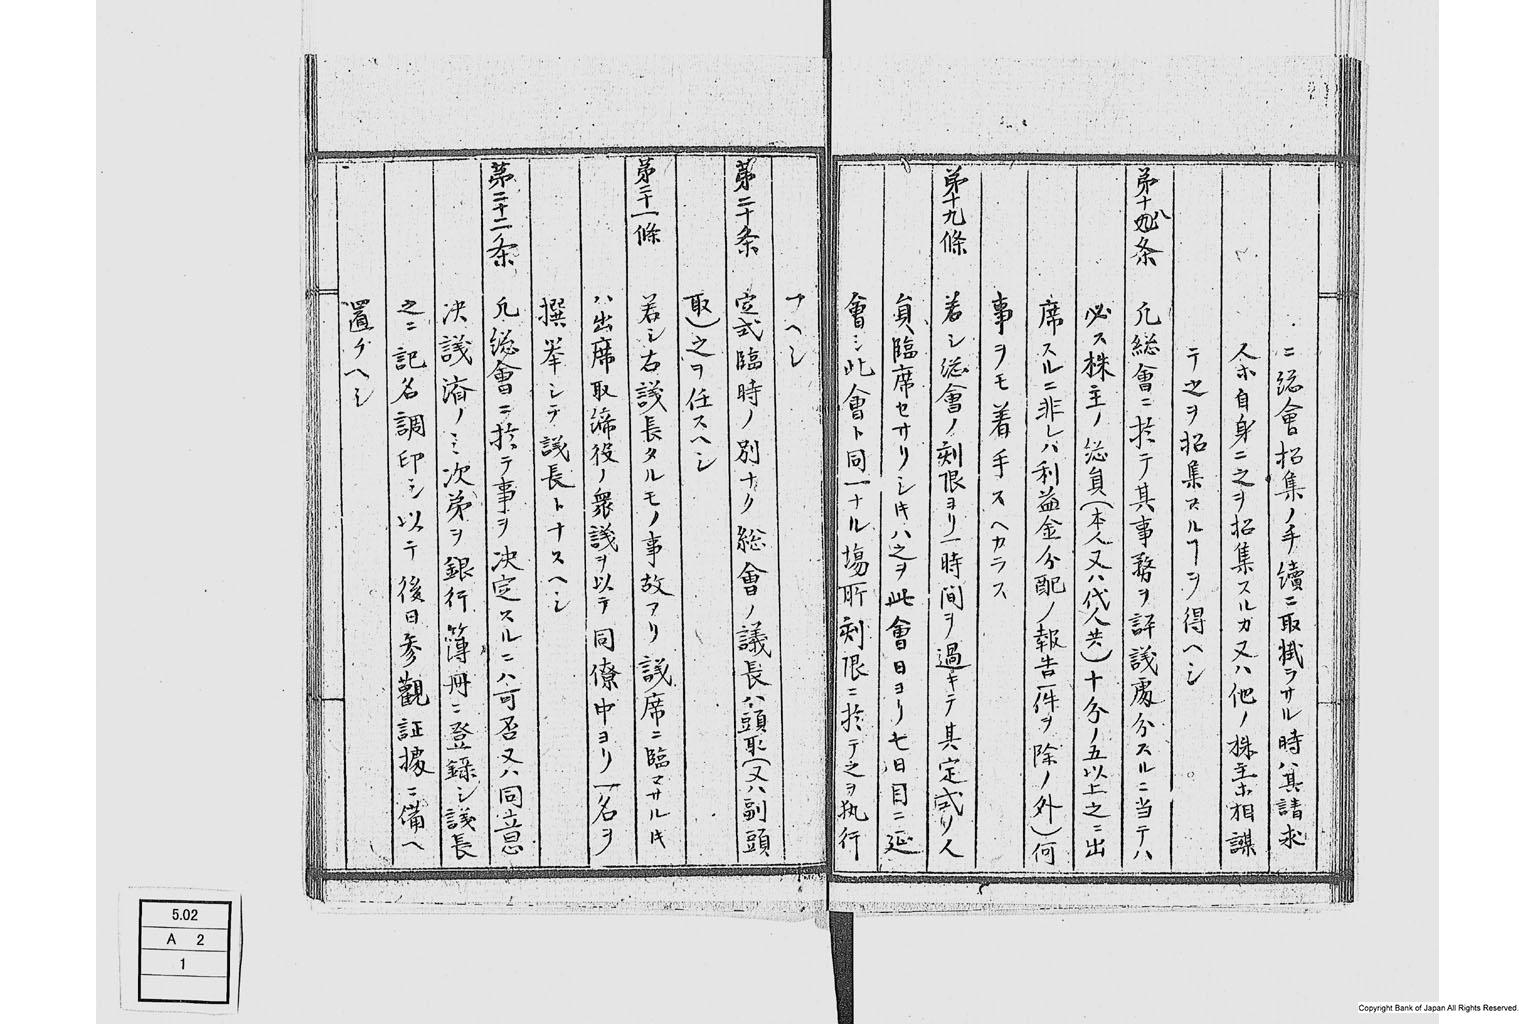 ニ総會招集ノ手續ニ取掛ラサル時ハ其請求
人ホ自身ニ之ヲ招集スルカ又ハ他ノ株主ホ相謀
テ之ヲ招集スルヿヲ得ヘシ
第十八条 凡総會ニ於テ其事務ヲ評議處分スルニ当テハ
必ス株主ノ総員(本人又ハ代人共)十分ノ五以上之ニ出
席スルニ非レハ利益金分配ノ報告一件ヲ除ノ外)何
事ヲモ着手スヘカラス
第十九條 若シ総會ノ刻限ヨリ一時間ヲ過キテ其定式ノ人
員臨席セサリシ𪜈ハ之ヲ此會日ヨリ七日目ニ延
會シ此會ト同一ナル塲所刻限ニ於テ之ヲ執行
フヘシ
第二十条 定式臨時ノ別ナク総會ノ議長ハ頭取(又ハ副頭
取)之ヲ任スヘシ
第二十一條 若シ右議長タルモノ事故アリ議席ニ臨マサルキ
ハ出席取締役ノ衆議ヲ以テ同僚中ヨリ一名ヲ
撰挙シテ議長トナスヘシ
第二十二条 凡総會ニ於テ事ヲ決定スルニハ可否又ハ同意
决議済ノミ次第ヲ銀行簿冊ニ登録シ議長
之ニ記名調印シ以テ後日参觀証據ニ備ヘ
置クヘシ
5.02
A 2
1
Copyright Bank of Japan All Rights Reserved.